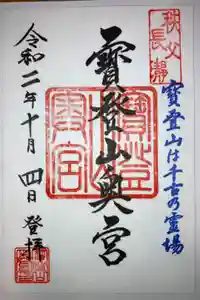 秩父
長瀞
寶登山は千古の霊場
寶登山奥宮
寶登山
奥宮
令和二年十月四日登拝